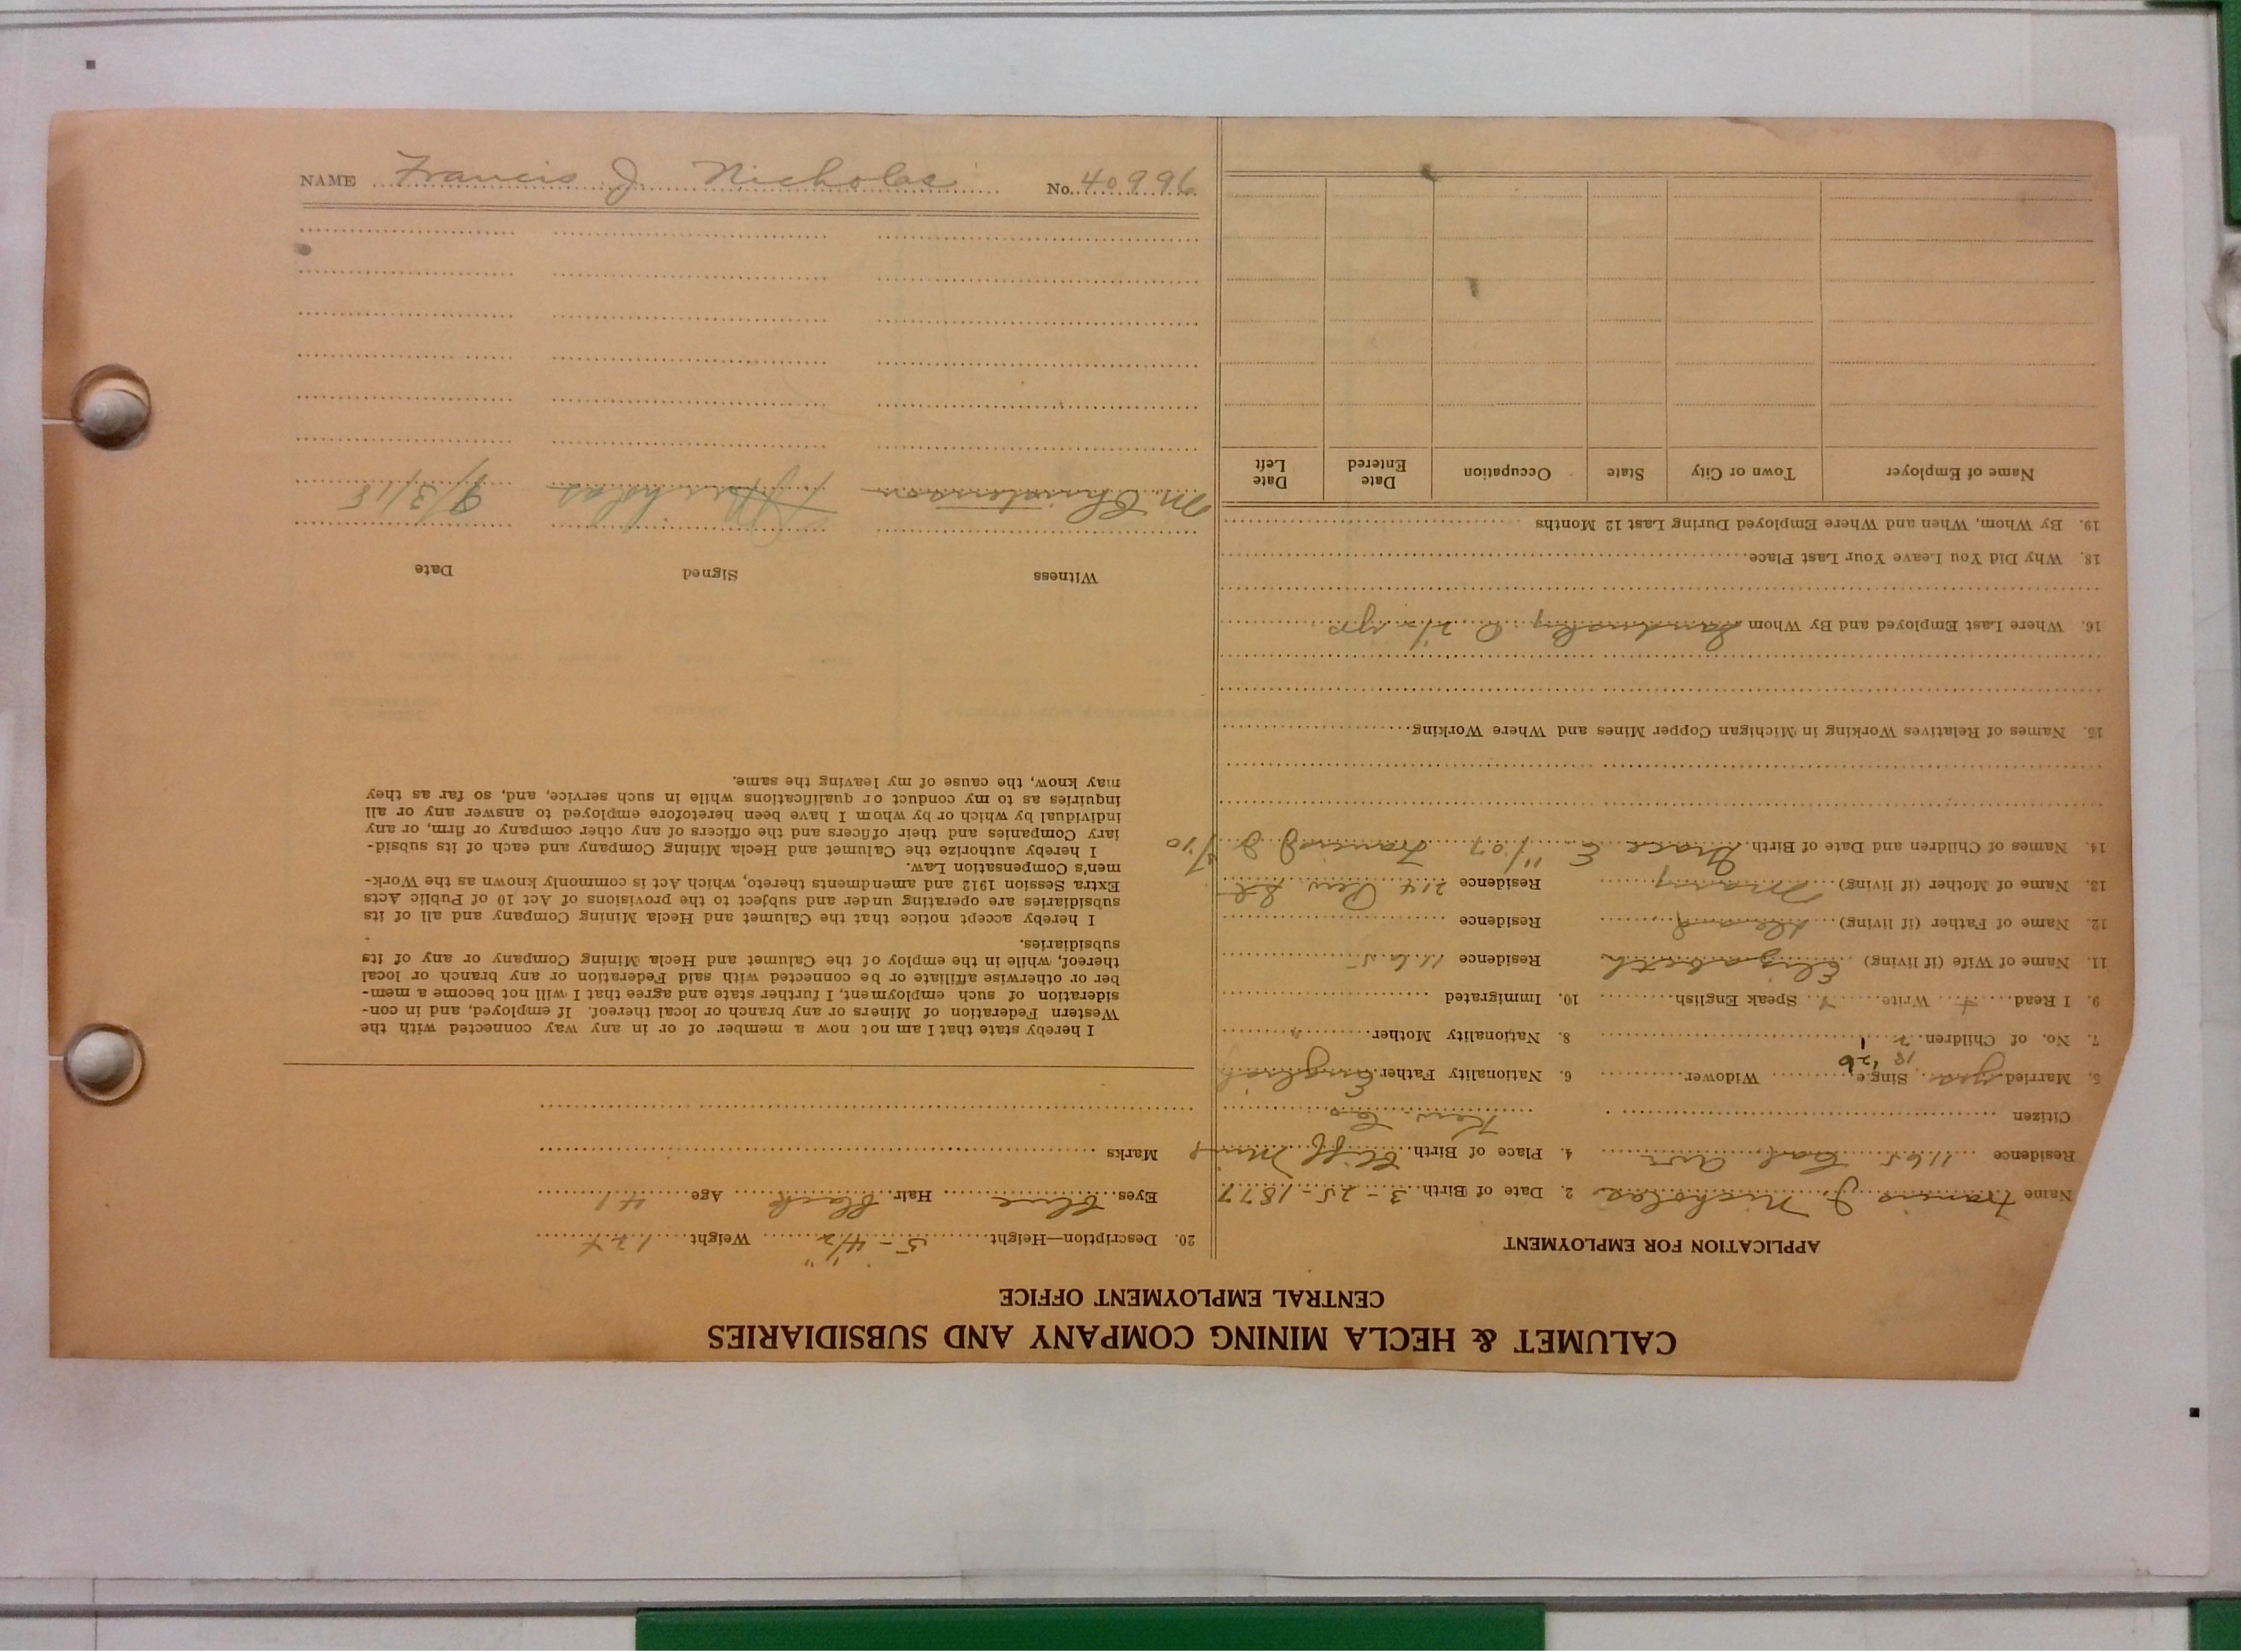 NAME Francis J. Nicholas No. 40996
CALUMET & HECLA MINING COMPANY AND SUBSIDIARIES
CENTRAL EMPLOYMENT OFFICE
APPLICATION FOR EMPLOYMENT
Name Francis J. Nicholas 2. Date of Birth 3-25-1877
Residence 1165 Cal. Ave 4. Place of Birth Cliff Mine
Citizen Kew. Co
5. Married yes Single Widower 6. Nationality Father English
7. No. of Children 2 8. Nationality Mother "
9. I Read Write Speak English 10. Immigrated
11. Name of Wife (if living) Elizabeth Residence 1165
12. Name of Father (if living) dead Residence
13. Name of Mother (if living) Mary Residence 214 St
14. Names of Children and Date of Birth Grace E 11/07 Francis J 8/10
15. Names of Relatives Working in Michigan Copper Mines and Where Working
16. Where Last Employed and By Whom Sandusky O 2 1/2 yrs
18. Why Did You Leave Your Last Place
19. By Whom, When and Where Employed During Last 12 Months
Name of Employer Town or City State Occupation Date Entered Date Left
20. Description—Height 5-4 1/2" Weight
Eyes blue Hair black Age 41
Marks
I hereby state that I am not now a member of or in any way connected with the
Western Federation of Miners or any branch or local thereof. If employed, and in con-
sideration of such employment, I further state and agree that I will not become a mem-
ber or otherwise affiliate or be connected with said Federation or any branch or local
thereof, while in the employ of the Calumet and Hecla Mining Company or any of its
subsidiaries.
I hereby accept notice that the Calumet and Hecla Mining Company and all of its
subsidiaries are operating under and subject to the provisions of Act 10 of Public Acts
Extra Session 1912 and amendments thereto, which Act is commonly known as the Work-
men's Compensation Law.
I hereby authorize the Calumet and Hecla Mining Company and each of its subsid-
iary Companies and their officers and the officers of any other company or firm, or any
individual by which or by whom I have been heretofore employed to answer any or all
inquiries as to my conduct or qualifications while in such service, and, so far as they
may know, the cause of my leaving the same.
Witness Signed Date
M. Christenson F J Nicholas 9/3/18